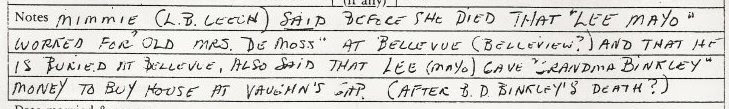 (if any)
Notes MIMMIE (L.B. LEECH) SAID BEFORE SHE DIED THAT "LEE MAYO"
WORKED FOR "OLD MRS. DE MOSS" AT BELLEVUE (BELLEVIEW?) AND THAT HE
IS BURIED AT BELLEVUE, ALSO SAID THAT LEE (MAYO) GAVE "GRANDMA BINKLEY"
MONEY TO BUY HOUSE AT VAUGHN'S GAP. (AFTER B.D. BINKLEY'S DEATH?)